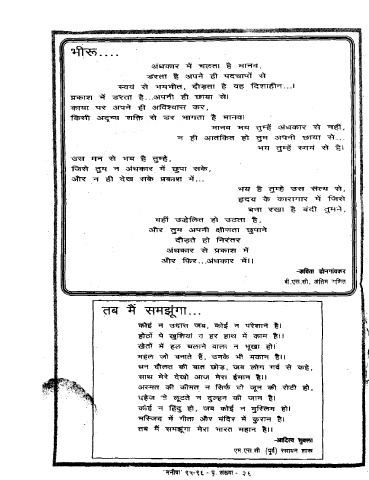 भीरू....
अंधकार में चलता है मानव,
डरता है अपने ही पदचापों से
स्वयं से भयभीत, दौड़ता है वह दिशाहीन...।
प्रकाश में डरता है...अपनी ही छाया से।
काया पर अपने ही अविश्वास कर,
किसी अदृष्य शक्ति से डर भागता है मानव।
मानव भय तुम्हें अंधकार से नहीं,
न ही आतंकित हो तुम अपनी छाया से...
भय तुम्हें स्वयं से है।
उस मन से भय है तुम्हे,
जिसे तुम न अंधकार में छुपा सके,
और न ही देख सके प्रकाश में...
भय है तुम्हे उस सत्य से,
हृदय के कारागार में जिसे
बना रखा है बंदी तुमने,
वहीं उद्वेलित हो उठता है,
और तुम अपनी क्षीणता छुपाने
दौड़ते हो निरंतर
अंधकार से प्रकाश में
और फिर...अंधकार में।।
-कविता डोनगांवकर
बी.एस.सी. अंतिम गणित
तब मैं समझूंगा...
कोई न उदास जब, कोई न परेशान है।
होठों पे खुशियां न हर हाथ में काम है।।
खेतों में हल चलाने वाला न भूखा हो।
महल जो बनाते हैं, उनके भी मकान है।।
धन दौलत की बात छोड़, जब लोग गर्व से कहे,
साथ मेरे देखो आज मेरा ईमान है।।
अस्मत की कीमत न सिर्फ दो जून की रोटी हो,
दहेज के लूटते न दुल्हन की जान है।
कोई न हिंदू हो, जब कोई न मुस्लिम हो।
मस्जिद में गीता और मंदिर में कुरान है।
तब मैं समझूंगा मेरा भारत महान है।।
-आदित्य शुक्ला
एम.एस.सी (पूर्व) रसायन शास्त्र
'मनीषा' ९५-९६ - पृ. संख्या - २६